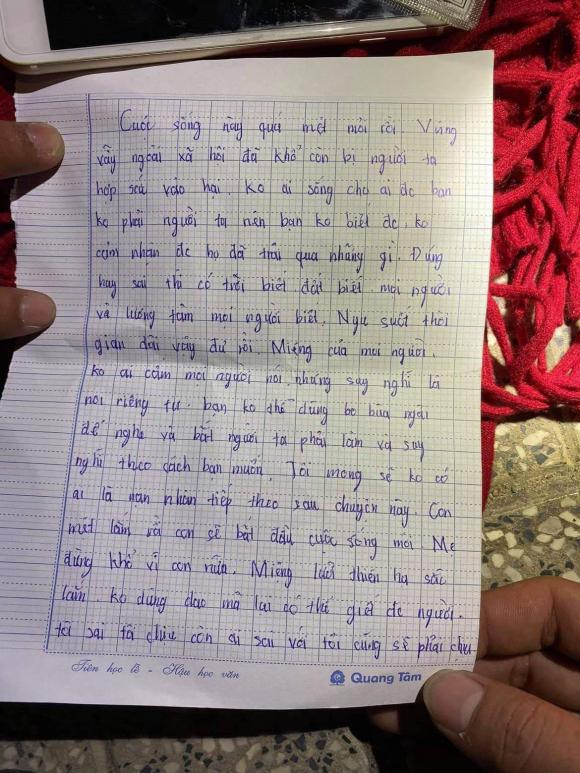 Cuộc sống này quá mệt mỏi rồi. Vùng
vẫy ngoài xã hội đã khổ còn bị người ta
hớp sủ vào hại. Ko ai sống cho ai đc bạn
ko phải người ta nên bạn ko biết đc, ko
cảm nhận đc họ đã trải qua những gì. Đúng
hay sai thì có trời biết đất biết. mọi người
và lương tâm mọi người biết. Ngần suốt thời
gian dài vậy đủ rồi. Miệng của mọi người,
ko ai cấm mọi người nói, những suy nghĩ là
nơi riêng tư. bạn ko thể dùng bo bua ngải
để nghe và bắt người ta phải làm và suy
nghĩ theo cách bạn muốn. Tôi mong sẽ ko có
ai là nạn nhân tiếp theo sau chuyện này. Con
mệt lắm rồi con sẽ bắt đầu cuộc sống mới. Mẹ
đừng khổ vì con nữa. Miệng lưỡi thiên hạ sắc
lắm. ko dùng dao mà lại có thể giết đc người.
tôi sai tôi chịu còn ai sai với tôi cũng sẽ phải chịu
Tiên học lễ - Hậu học văn
Quang Tâm